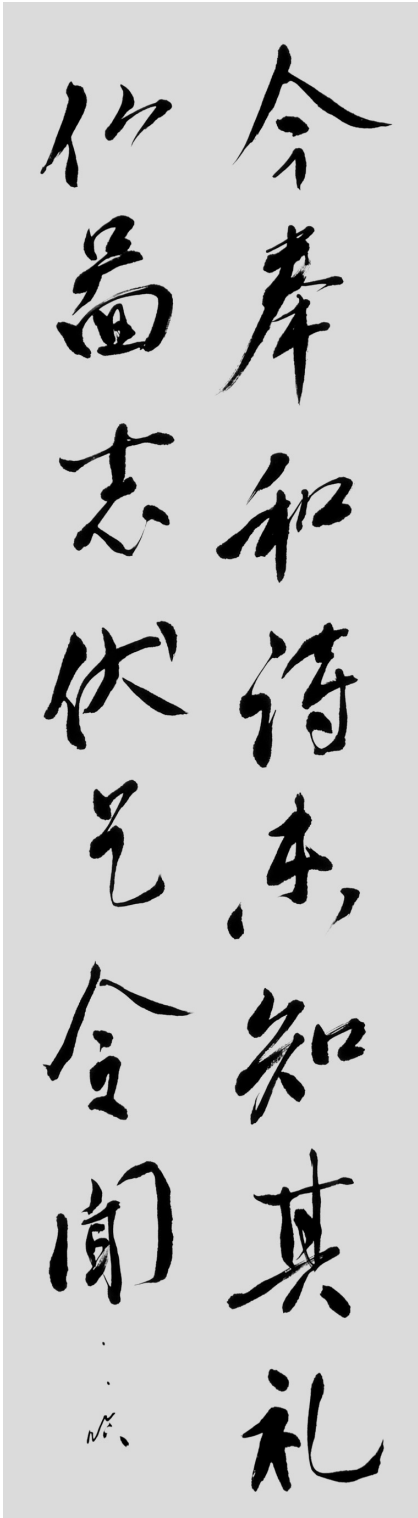 今奉和诗未知其礼
仙图志伏乞令闻